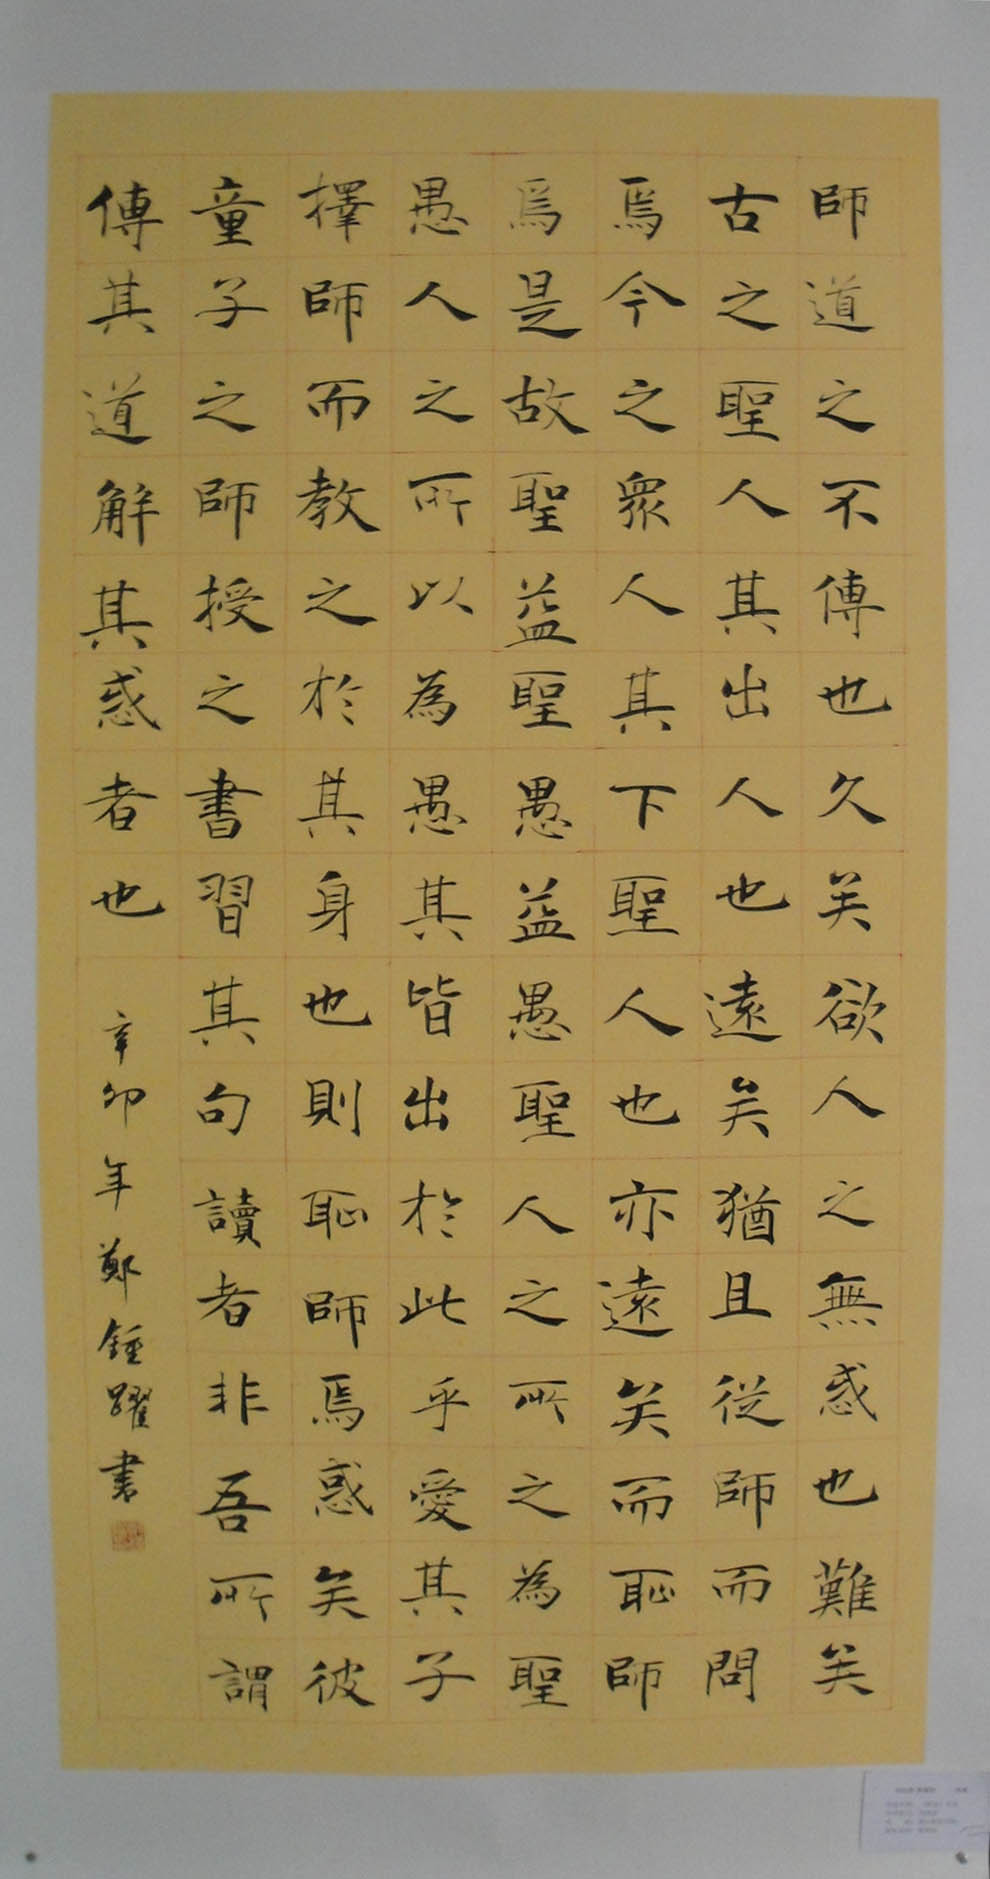 師道之不傳也久矣欲人之無惑也難矣
古之聖人其出人也遠矣猶且從師而問
焉今之衆人其下聖人也亦遠矣而恥師
焉是故聖益聖愚益愚聖人之所之為聖
愚人之所以為愚其皆出於此乎愛其子
擇師而教之於其身也則恥師焉惑矣彼
童子之師授之書習其句讀者非吾所謂
傳其道解其惑者也
辛卯年鄭鍾躍書